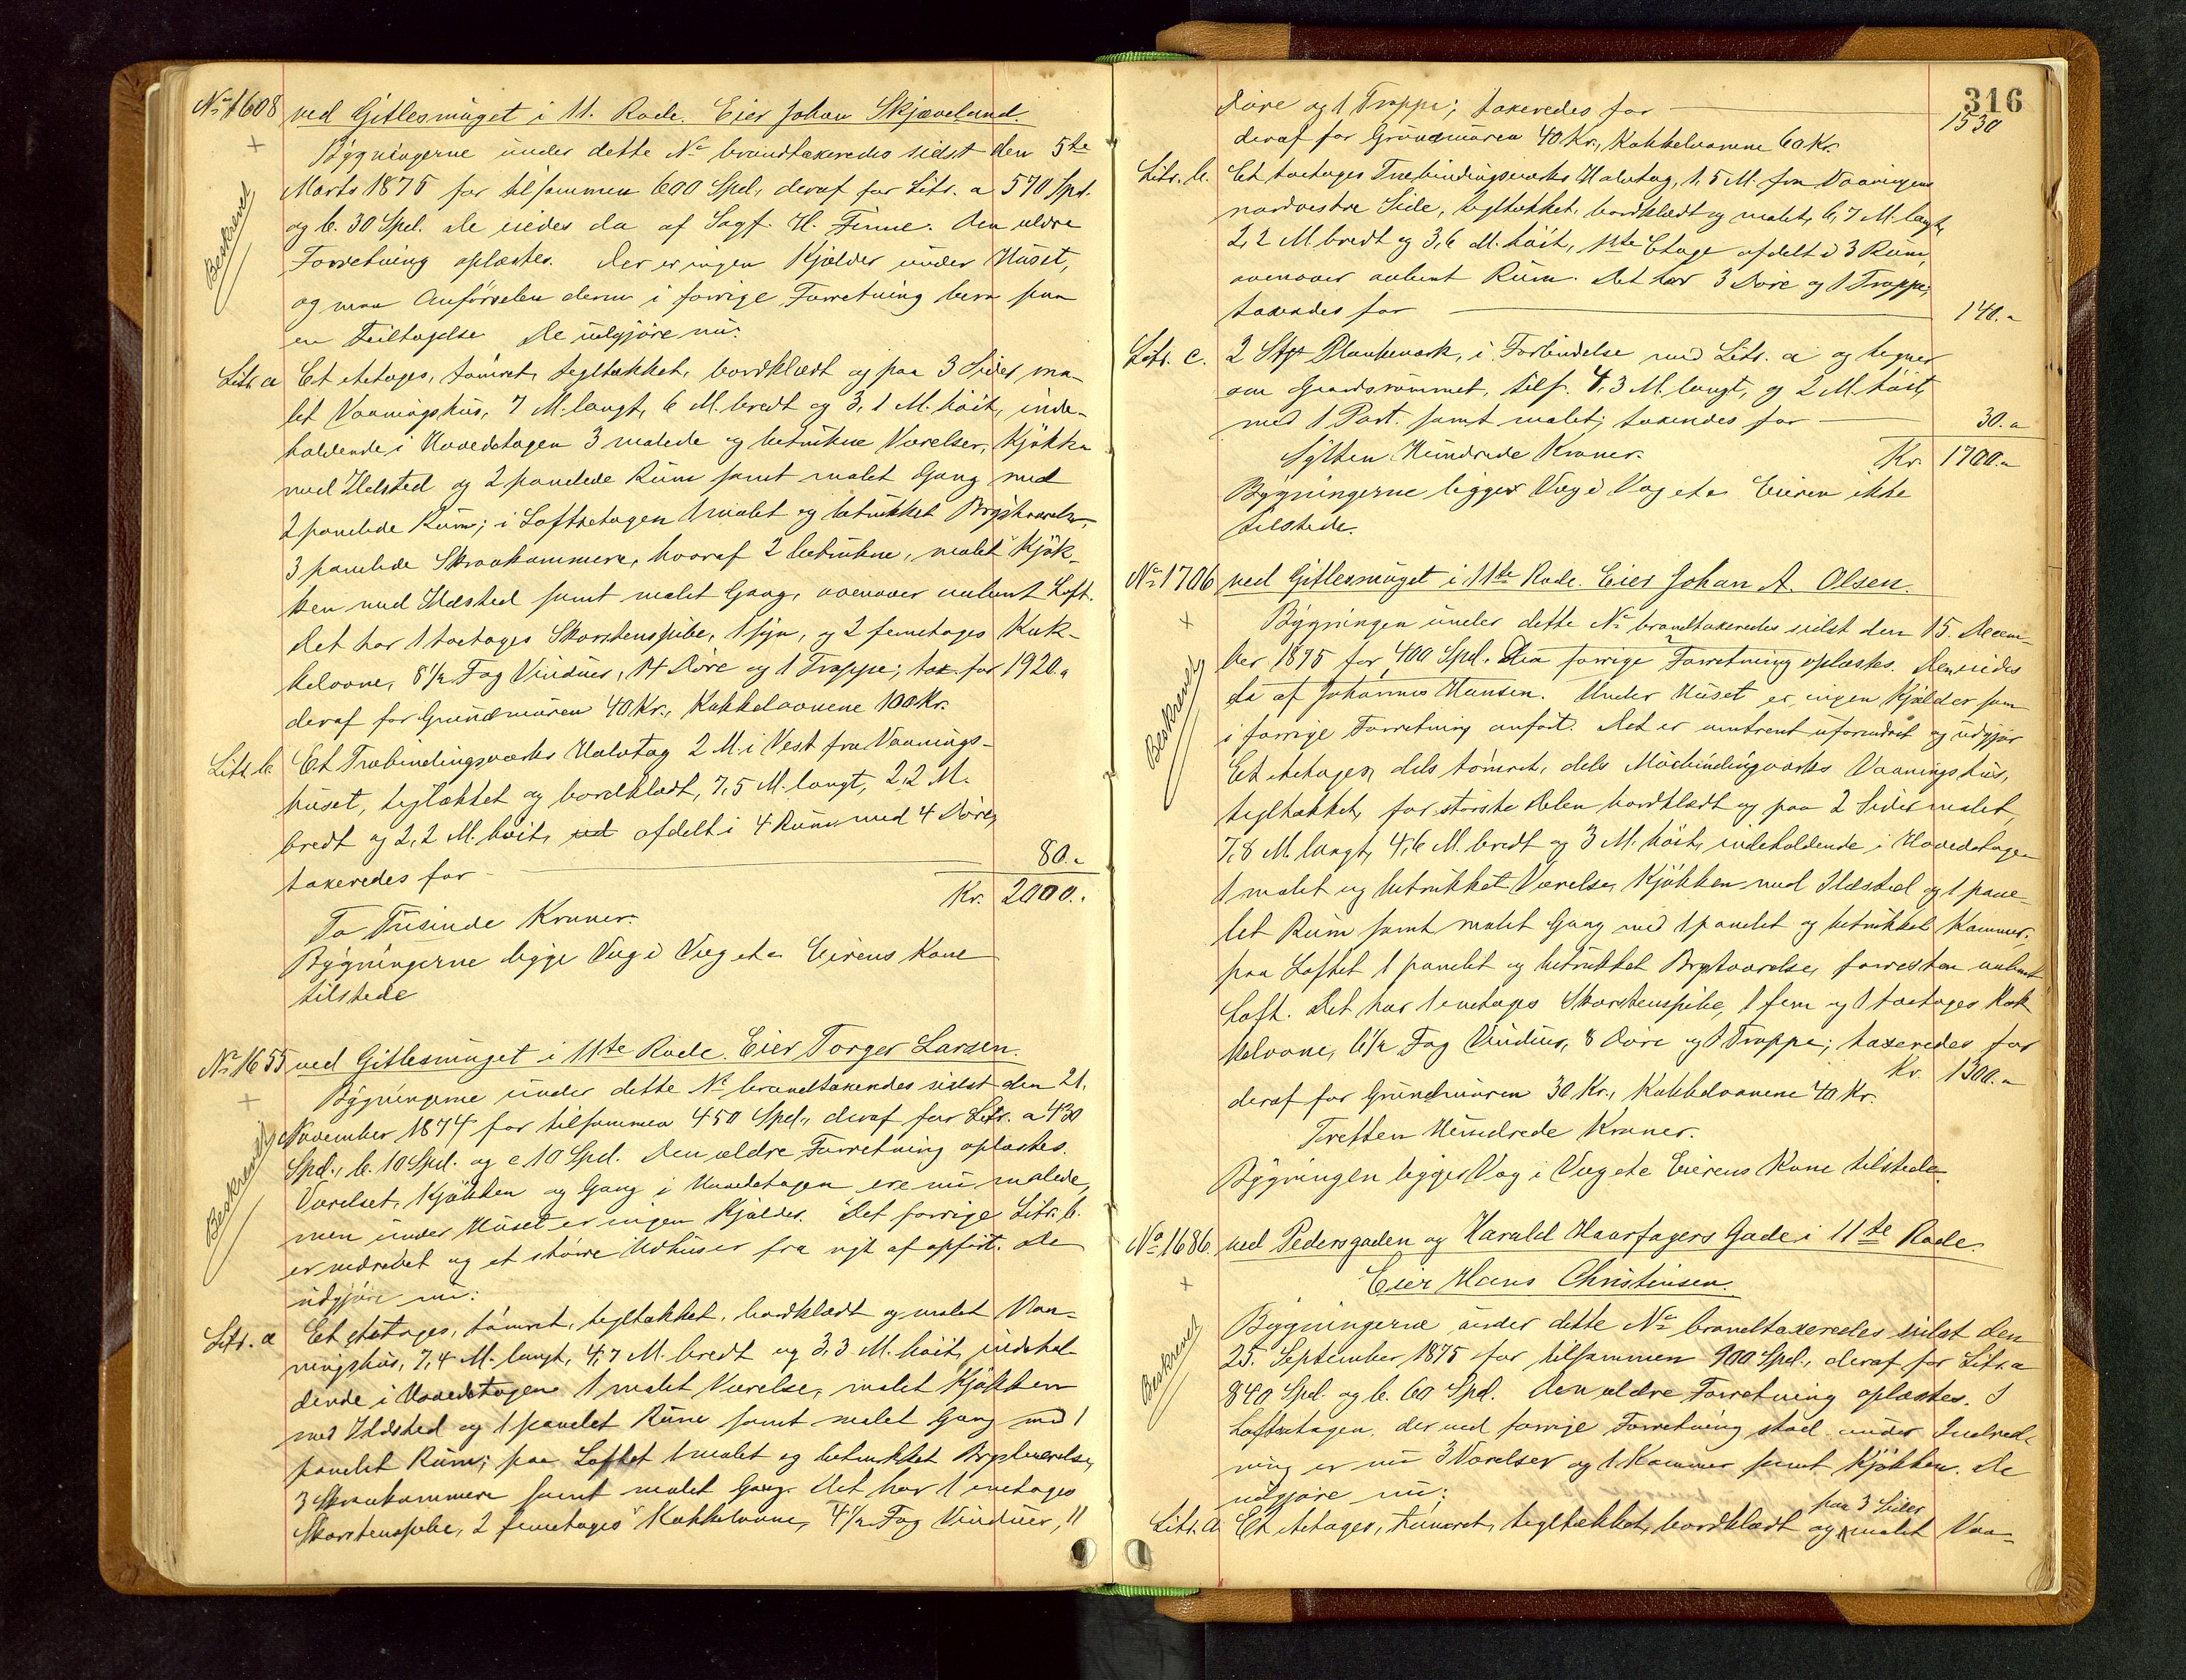 No 1608 ved Gitlesmuget i 11. Rode. Eier Johan Skjæveland.
Bygningerne under dette No brandtaxeredes sidst den 5te
Beskrevet
Marts 1875 for tilsammen 600 Spd., deraf for Litr. a 570 Spd.
og b. 30 Spd. De eiedes da af Sagf. H. Finne. Den ældre
Forretning oplæstes. Der er ingen Kjælder under Huset,
og maa Anførselen derom i forrige Forretning bero paa
en Feiltagelse. De udgjøre nu:
Litr. a Et etetages, tømret, tegltækket, bordklædt og paa 3 Sider ma-
let Vaaningshus, 7 M. langt, 6 M. bredt og 3,1 M. høit, inde-
holdende i Hovedetagen 3 malede og betrukne Værelser, Kjøkken
med Ildsted og 2 panelede Rum samt malet Gang med
2 panelede Rum; i Loftsetagen 1 malet og betrukket Brystværelse,
3 panelede Skraakammere, hvoraf 2 betrukne, malet Kjøk-
ken med Ildsted samt malet Gang, ovenover aabent Loft.
Det har 1 toetages Skorstenspibe, 1 fyr, og 2 femetages Kak-
kelovne, 8 1/2 Fag Vinduer, 14 Døre og 1 Trappe; tax. for 1920.„
deraf for Grundmuren 40 Kr., Kakkelovnene 100 Kr.
Litr. b. Et Træbindingsværks Halvtag 2 M. i Vest fra Vaanings-
huset, tegltækket og bordklædt, 7,5 M. langt, 2,2 M.
bredt og 2,2 M. høit, ud afdelt i 4 Rum med 4 Døre,
taxeredes for 80.„
Kr. 2000.„
To Tusinde Kroner.
Bygningerne ligge Væg i Væg etc. Eierens Kone
tilstede
No 1655 ved Gitlesmuget i 11te Rode. Eier Torger Larsen.
Bygningerne under dette No brandtaxeredes sidst den 21.
Beskrevet
November 1874 for tilsammen 450 Spd., deraf for Litr. a 430
Spd., b. 10 Spd. og c 10 Spd. Den ældre Forretning oplæstes.
Værelset, Kjøkken og Gang i Hovedetagen ere nu malede,
men under Huset er ingen Kjælder. Det forrige Litr. b.
er nedrevet og et større Udhus er fra nyt af opført. De
udgjøre nu:
Litr. a Et etetages, tømret, tegltækket, bordklædt og malet Vaa-
ningshus, 7,4 M. langt, 4,7 M. bredt og 3,3 M. høit, indehol-
dende i Hovedetagen 1 malet Værelse, malet Kjøkken
med Ildsted og 1 panelet Rum samt malet Gang med 1
panelet Rum; paa Loftet 1 malet og betrukket Brystværelse,
3 Skraakammere samt malet Gang. Det har 1 enetages
Skorstenspibe, 2 femetages Kakkelovne, 4 1/2 Fag Vinduer, 11
316
Døre og 1 Trappe; taxeredes for 1530
deraf for Grundmuren 40 Kr., Kakkelovnene 60 Kr.
Litr. b. Et toetages Træbindingsværks Halvtag, 1,5 M. fra Vaaningens
nordvestre Side, tegltækket, bordklædt og malet, 6,7 M. langt,
2,2 M bredt og 3,6 M. høit, 1ste Etage afdelt i 3 Rum,
ovenover aabent Rum. Det har 3 Døre og 1 Trappe;
taxeredes for 140.„
Litr. c. 2 Stkr Plankeværk, i Forbindelse med Litr. a og
om Gaardsrummet, tils. 4,3 M. langt, og 2 M. høit,
med 1 Port samt malet; taxeredes for 30.„
Sytten Hundrede Kroner. Kr. 1700.„
Bygningerne ligger Væg i Væg etc. Eieren ikke
tilstede.
No 1706 ved Gitlesmuget i 11te Rode. Eier Johan A. Olsen.
Bygningen under dette No brandtaxeredes sidst den 15. Decem-
Beskrevet
ber 1875 for 400 Spd. Den forrige Forretning oplæstes. Den eiedes
da af Johannes Hansen. Under Huset er ingen Kjælder som
i forrige Forretning anført. Det er omtrent uforandret og udgjør
Et etetages, dels tømret, dels Murbindingværks Vaaningshus,
tegltækket, for største Delen bordklædt og paa 2 Sider malet,
7,8 M. langt, 4,6 M. bredt og 3 M. høit, indeholdende i Hovedetagen
1 malet og betrukket Værelse, Kjøkken med Ildsted og 1 pane-
let Rum samt malet Gang med 1 panelet og betrukket Kammer;
paa Loftet 1 panelet og betrukket Brystværelse, forresten aabent
Loft. Det har 1 enetages Skorstenspibe, 1 fem og 1 toetages Kak
kelovne, 6 1/2 Fag Vinduer, 8 Døre og 1 Trappe; taxeredes for
Kr. 1300.„
deraf for Grundmuren 30 Kr., Kakkelovnene 40 Kr.
Tretten Hundrede Kroner.
Bygningen ligger Væg i Væg etc Eierens Kone tilstede.
No 1686. ved Pedersgaden og Harald Haarfagers Gade i 11te Rode.
Eier Hans Christensen.
Beskrevet
Bygningerne under dette No brandtaxeredes sidst den
25. September 1875 for tilsammen 900 Spd., deraf for Litr. a
840 Spd. og b. 60 Spd. Den ældre Forretning oplæstes. I
Loftsetagen, der ved forrige Forretning stod under Indred-
ning er nu 3 Værelser og 1 Kammer samt Kjøkken. De
udgjøre nu:
paa 3 Sider
Litr. a Et etetages, tømret, tegltækket, bordklædt og malet Vaa-